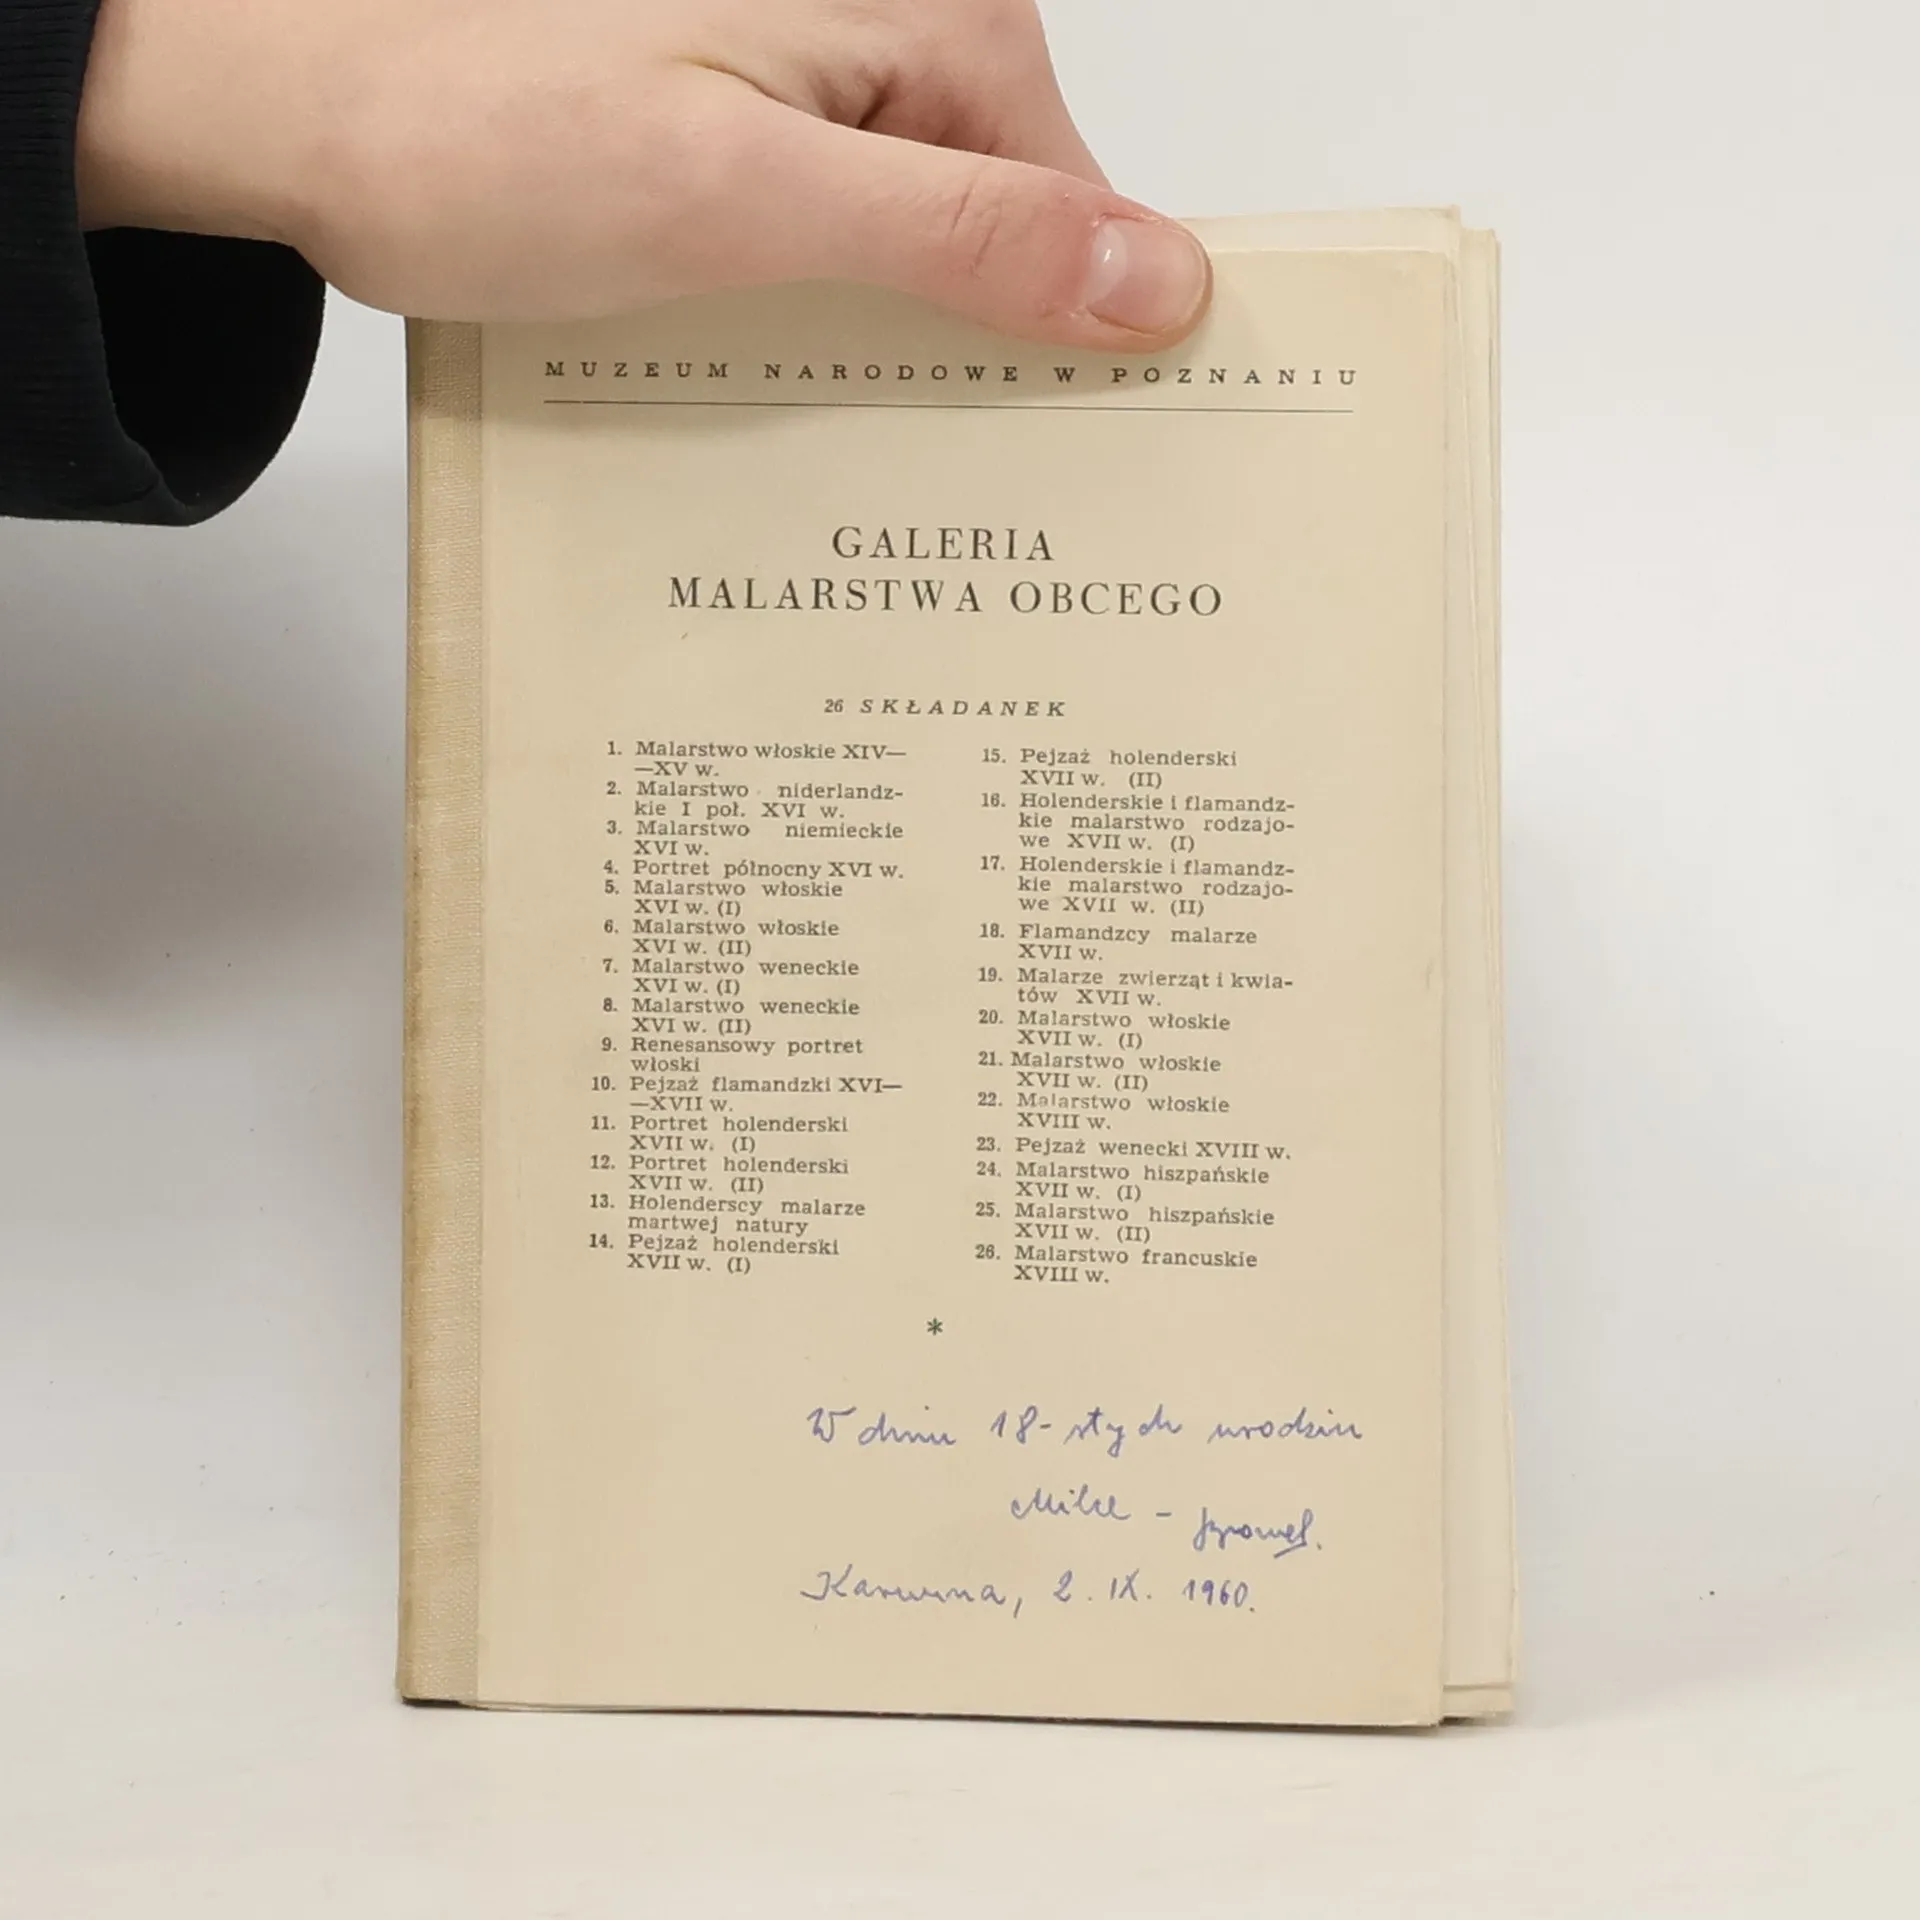 MUZEUM NARODOWE W POZNANIU
GALERIA
MALARSTWA OBCEGO
26 SKŁADANEK
1. Malarstwo włoskie XIV—
—XV w.
2. Malarstwo niderlandz-
kie I poł. XVI w.
3. Malarstwo niemieckie
XVI w.
4. Portret północny XVI w.
5. Malarstwo włoskie
XVI w. (I)
6. Malarstwo włoskie
XVI w. (II)
7. Malarstwo weneckie
XVI w. (I)
8. Malarstwo weneckie
XVI w. (II)
9. Renesansowy portret
włoski
10. Pejzaż flamandzki XVI—
—XVII w.
11. Portret holenderski
XVII w. (I)
12. Portret holenderski
XVII w. (II)
13. Holenderscy malarze
martwej natury
14. Pejzaż holenderski
XVII w. (I)
15. Pejzaż holenderski
XVII w. (II)
16. Holenderskie i flamandz-
kie malarstwo rodzajo-
we XVII w. (I)
17. Holenderskie i flamandz-
kie malarstwo rodzajo-
we XVII w. (II)
18. Flamandzcy malarze
XVII w.
19. Malarze zwierząt i kwia-
tów XVII w.
20. Malarstwo włoskie
XVII w. (I)
21. Malarstwo włoskie
XVII w. (II)
22. Malarstwo włoskie
XVIII w.
23. Pejzaż wenecki XVIII w.
24. Malarstwo hiszpańskie
XVII w. (I)
25. Malarstwo hiszpańskie
XVII w. (II)
26. Malarstwo francuskie
XVIII w.
*
W dniu 18-stych urodzin
Milce -
Karwina, 2. IX. 1960.